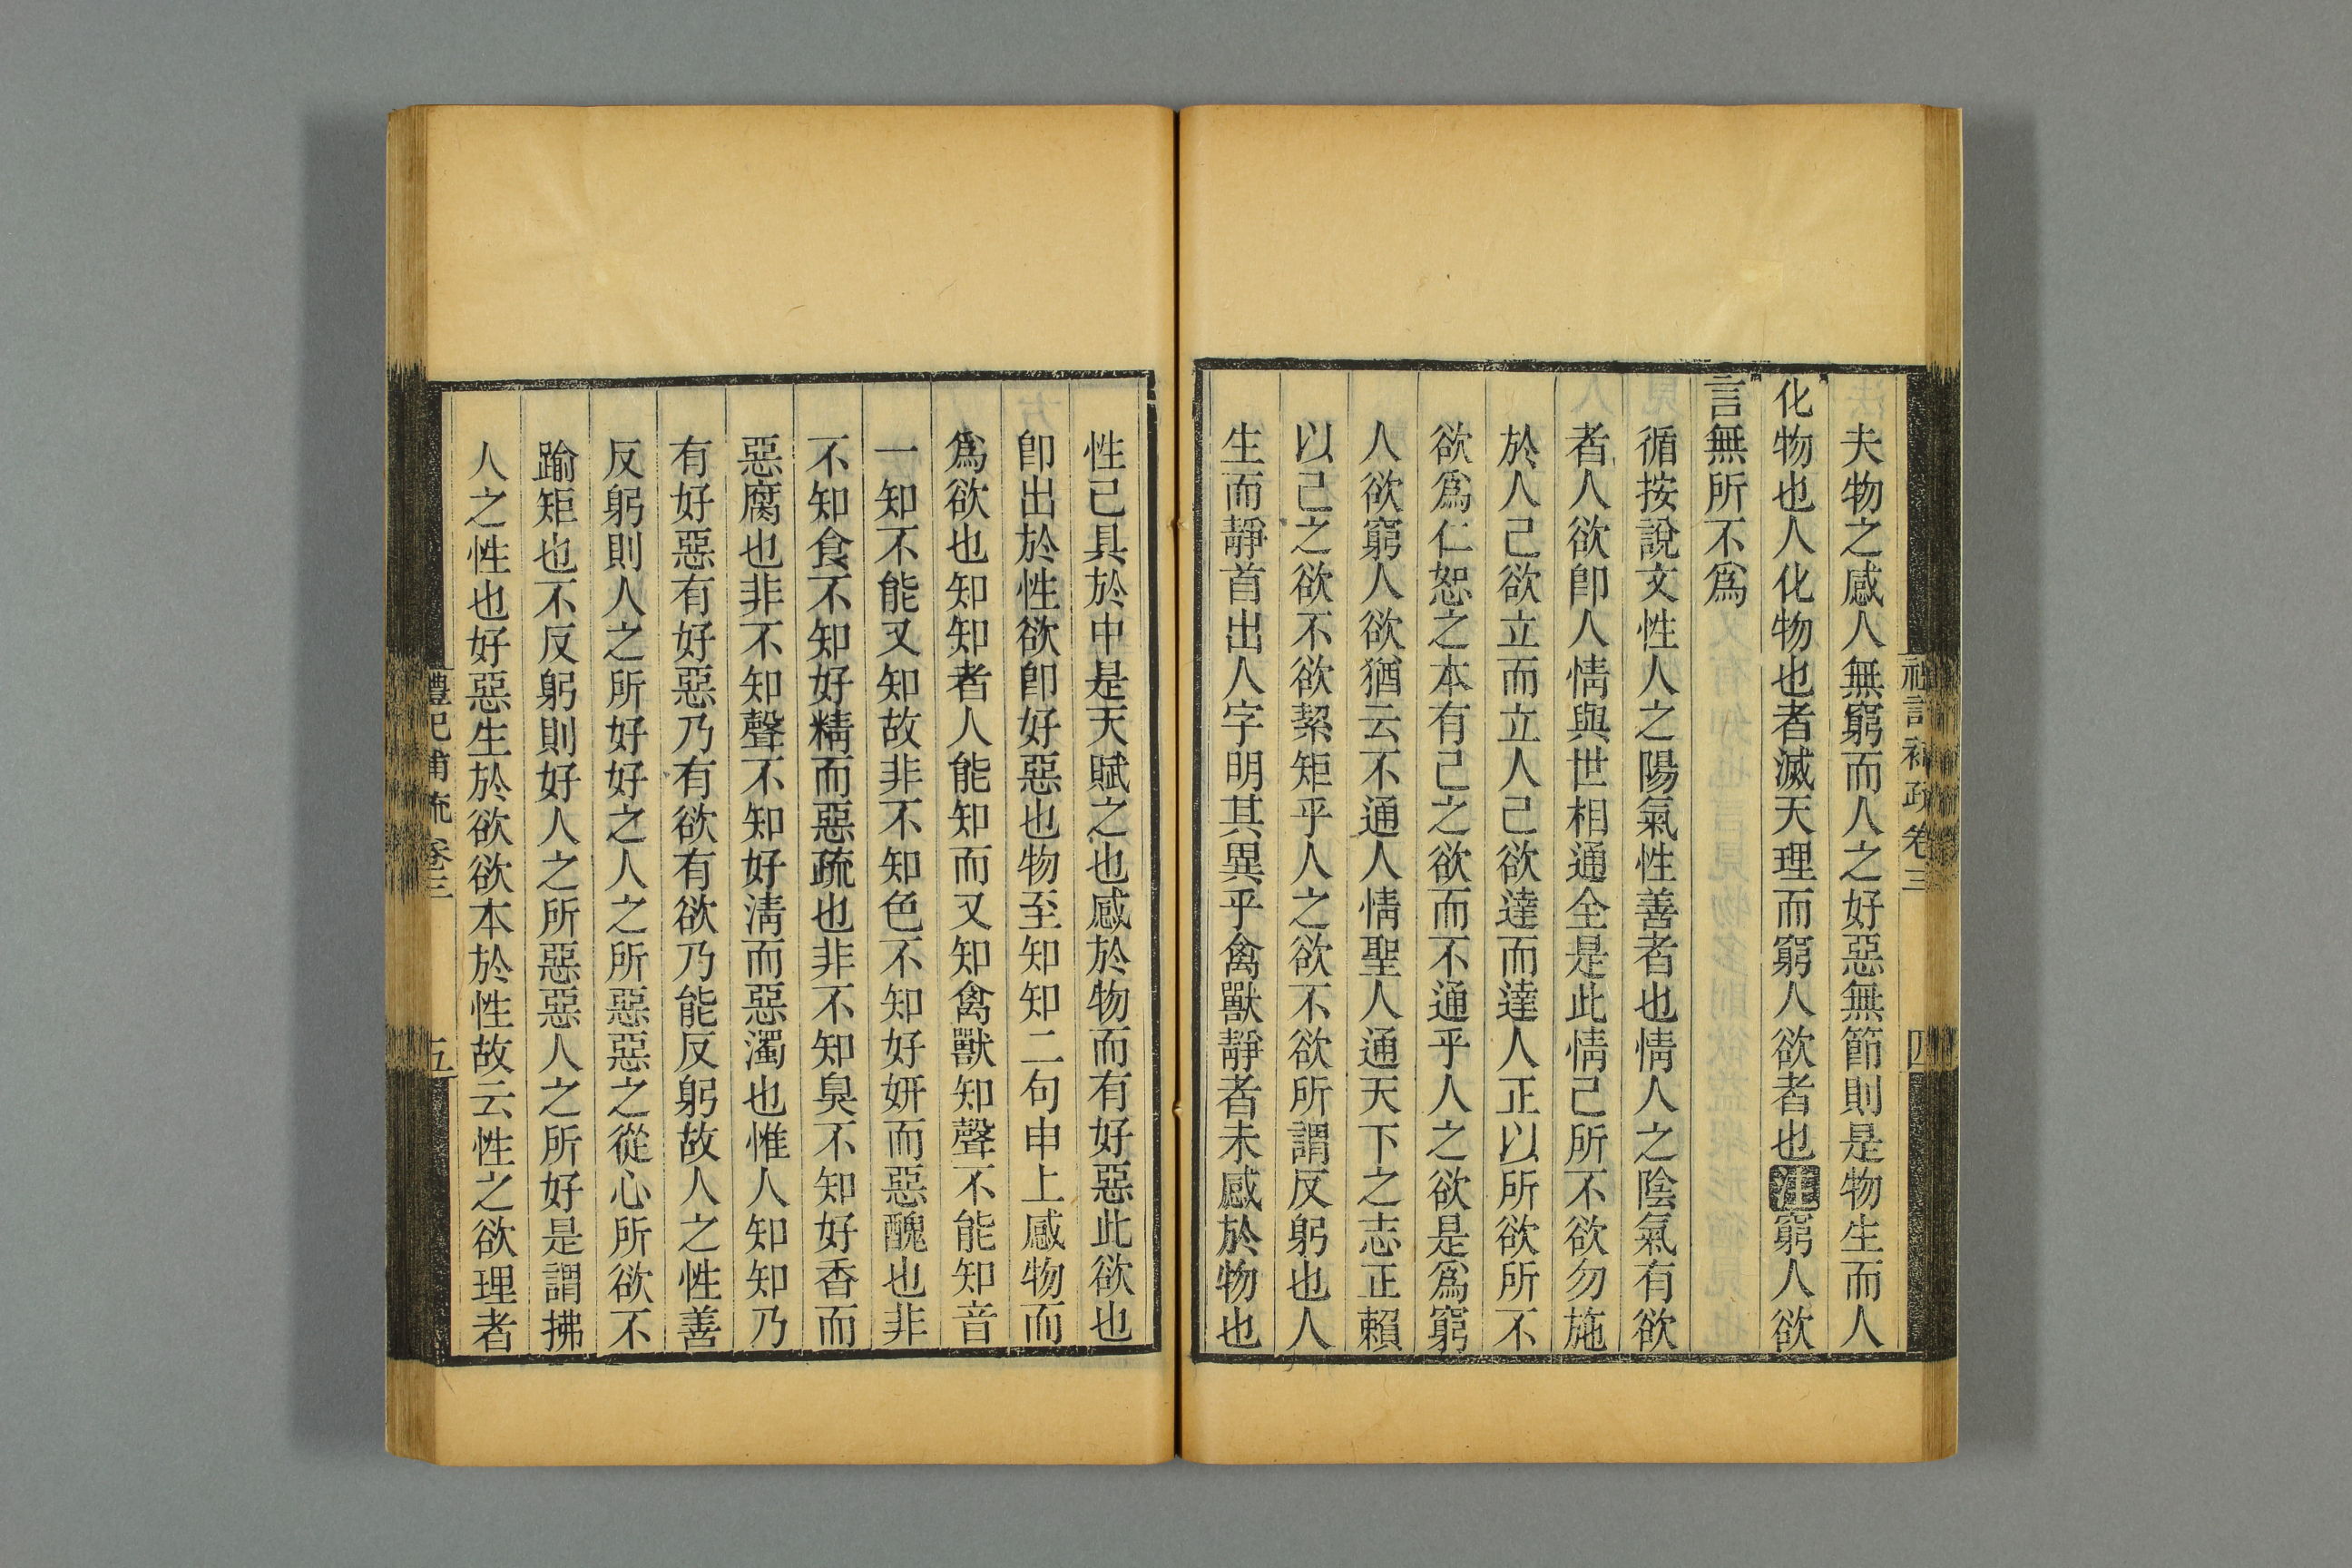 禮記補疏卷三
四
夫物之感人無窮而人之好惡無節則是物生而人
化物也人化物也者滅天理而窮人欲者也注窮人欲
言無所不爲
循按說文性人之陽氣性善者也情人之陰氣有欲
者人欲卽人情與世相通全是此情己所不欲勿施
於人己欲立而立人己欲達而達人正以所欲所不
欲爲仁恕之本有己之欲而不通乎人之欲是爲窮
人欲窮人欲猶云不通人情聖人通天下之志正賴
以己之欲不欲絜矩乎人之欲不欲所謂反躬也人
生而靜首出人字明其異乎禽獸靜者未感於物也
性已具於中是天賦之也感於物而有好惡此欲也
卽出於性欲卽好惡也物至知知二句申上感物而
爲欲也知知者人能知而又知禽獸知聲不能知音
一知不能又知故非不知色不知好妍而惡醜也非
不知食不知好精而惡疏也非不知臭不知好香而
惡腐也非不知聲不知好清而惡濁也惟人知知乃
有好惡有好惡乃有欲有欲乃能反躬故人之性善
反躬則人之所好好之人之所惡惡之從心所欲不
踰矩也不反躬則好人之所惡惡人之所好是謂拂
人之性也好惡生於欲欲本於性故云性之欲理者
禮記補疏卷三
五